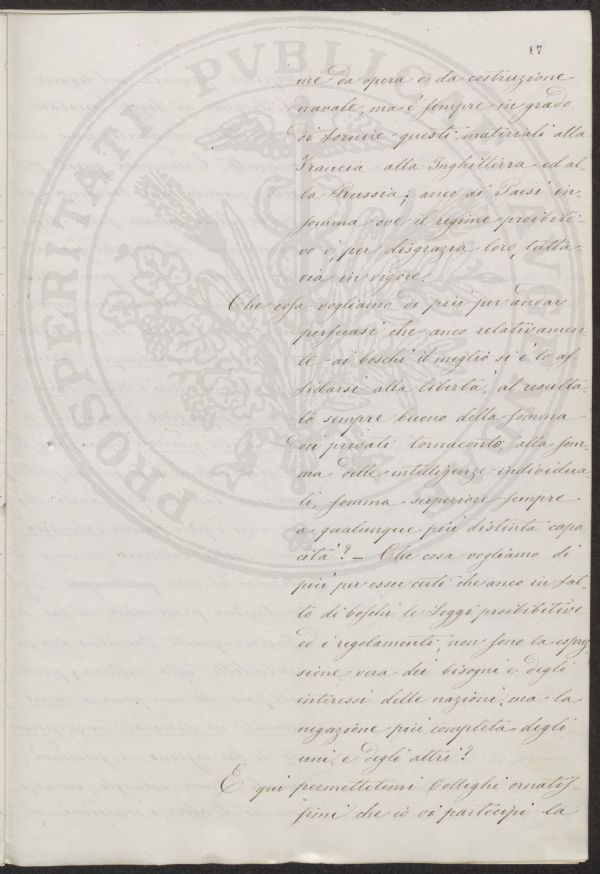 17
me da opera e da costruzione
navale, ma è sempre in grado
di fornire questi materiali alla
Francia alla Inghilterra ed al-
la Prussia; anco ai Paesi in-
somma ove il regime proibiti-
vo è, per disgrazia loro, tutta-
via in vigore.
Che cosa vogliamo di più per andar
persuasi che anco relativamen
te ai boschi il meglio si è lo af-
fidarsi alla libertà, al resulta-
to sempre buono della somma
dei privati tornaconti, alla som-
ma delle intelligenze individua
li, somma superiore sempre
a qualunque più distinta capa
cità? — Che cosa vogliamo di
più per esser certi che anco in fat-
to di boschi le Leggi proibitive
ed i regolamenti, non sono la espres
sione vera dei bisogni e degli
interessi delle nazioni, ma la
negazione più completa degli
uni, e degli altri?
E qui permettetemi Colleghi ornatis-
simi che io vi partecipi la
PROSPERITATI PVBLICAE